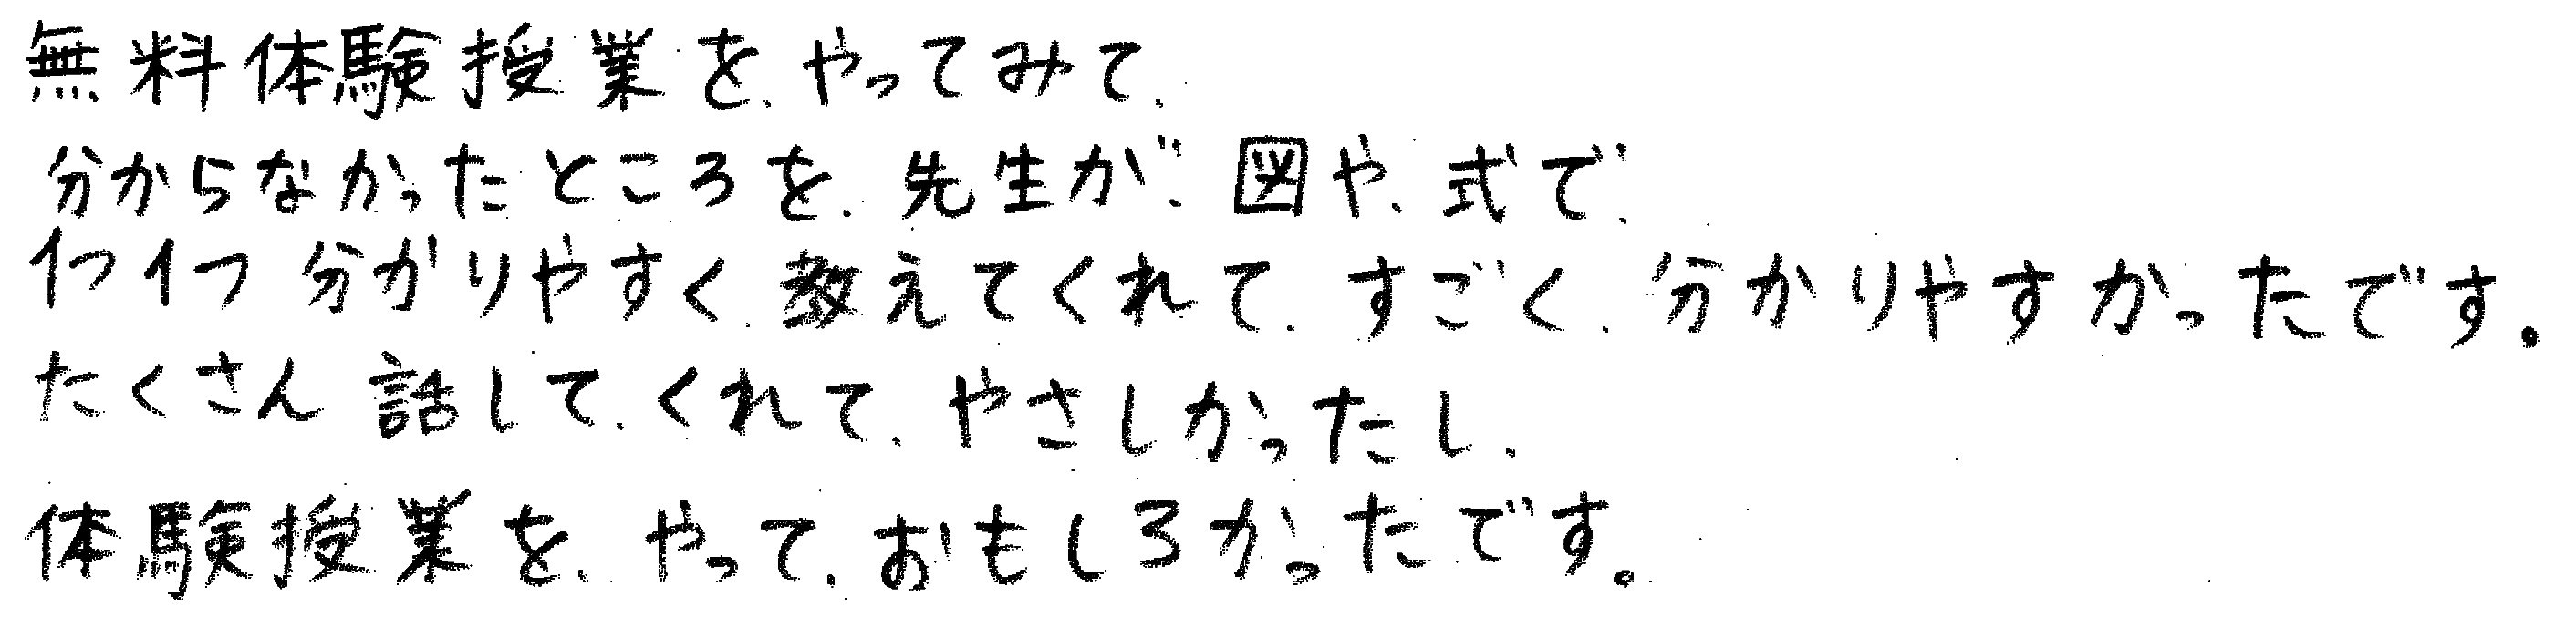 無料体験授業を、やってみて、
分からなかったところを、先生が、図や、式で、
1つ1つ分かりやすく、教えてくれて、すごく、分かりやすかったです。
たくさん話して、くれて、やさしかったし、
体験授業を、やって、おもしろかったです。